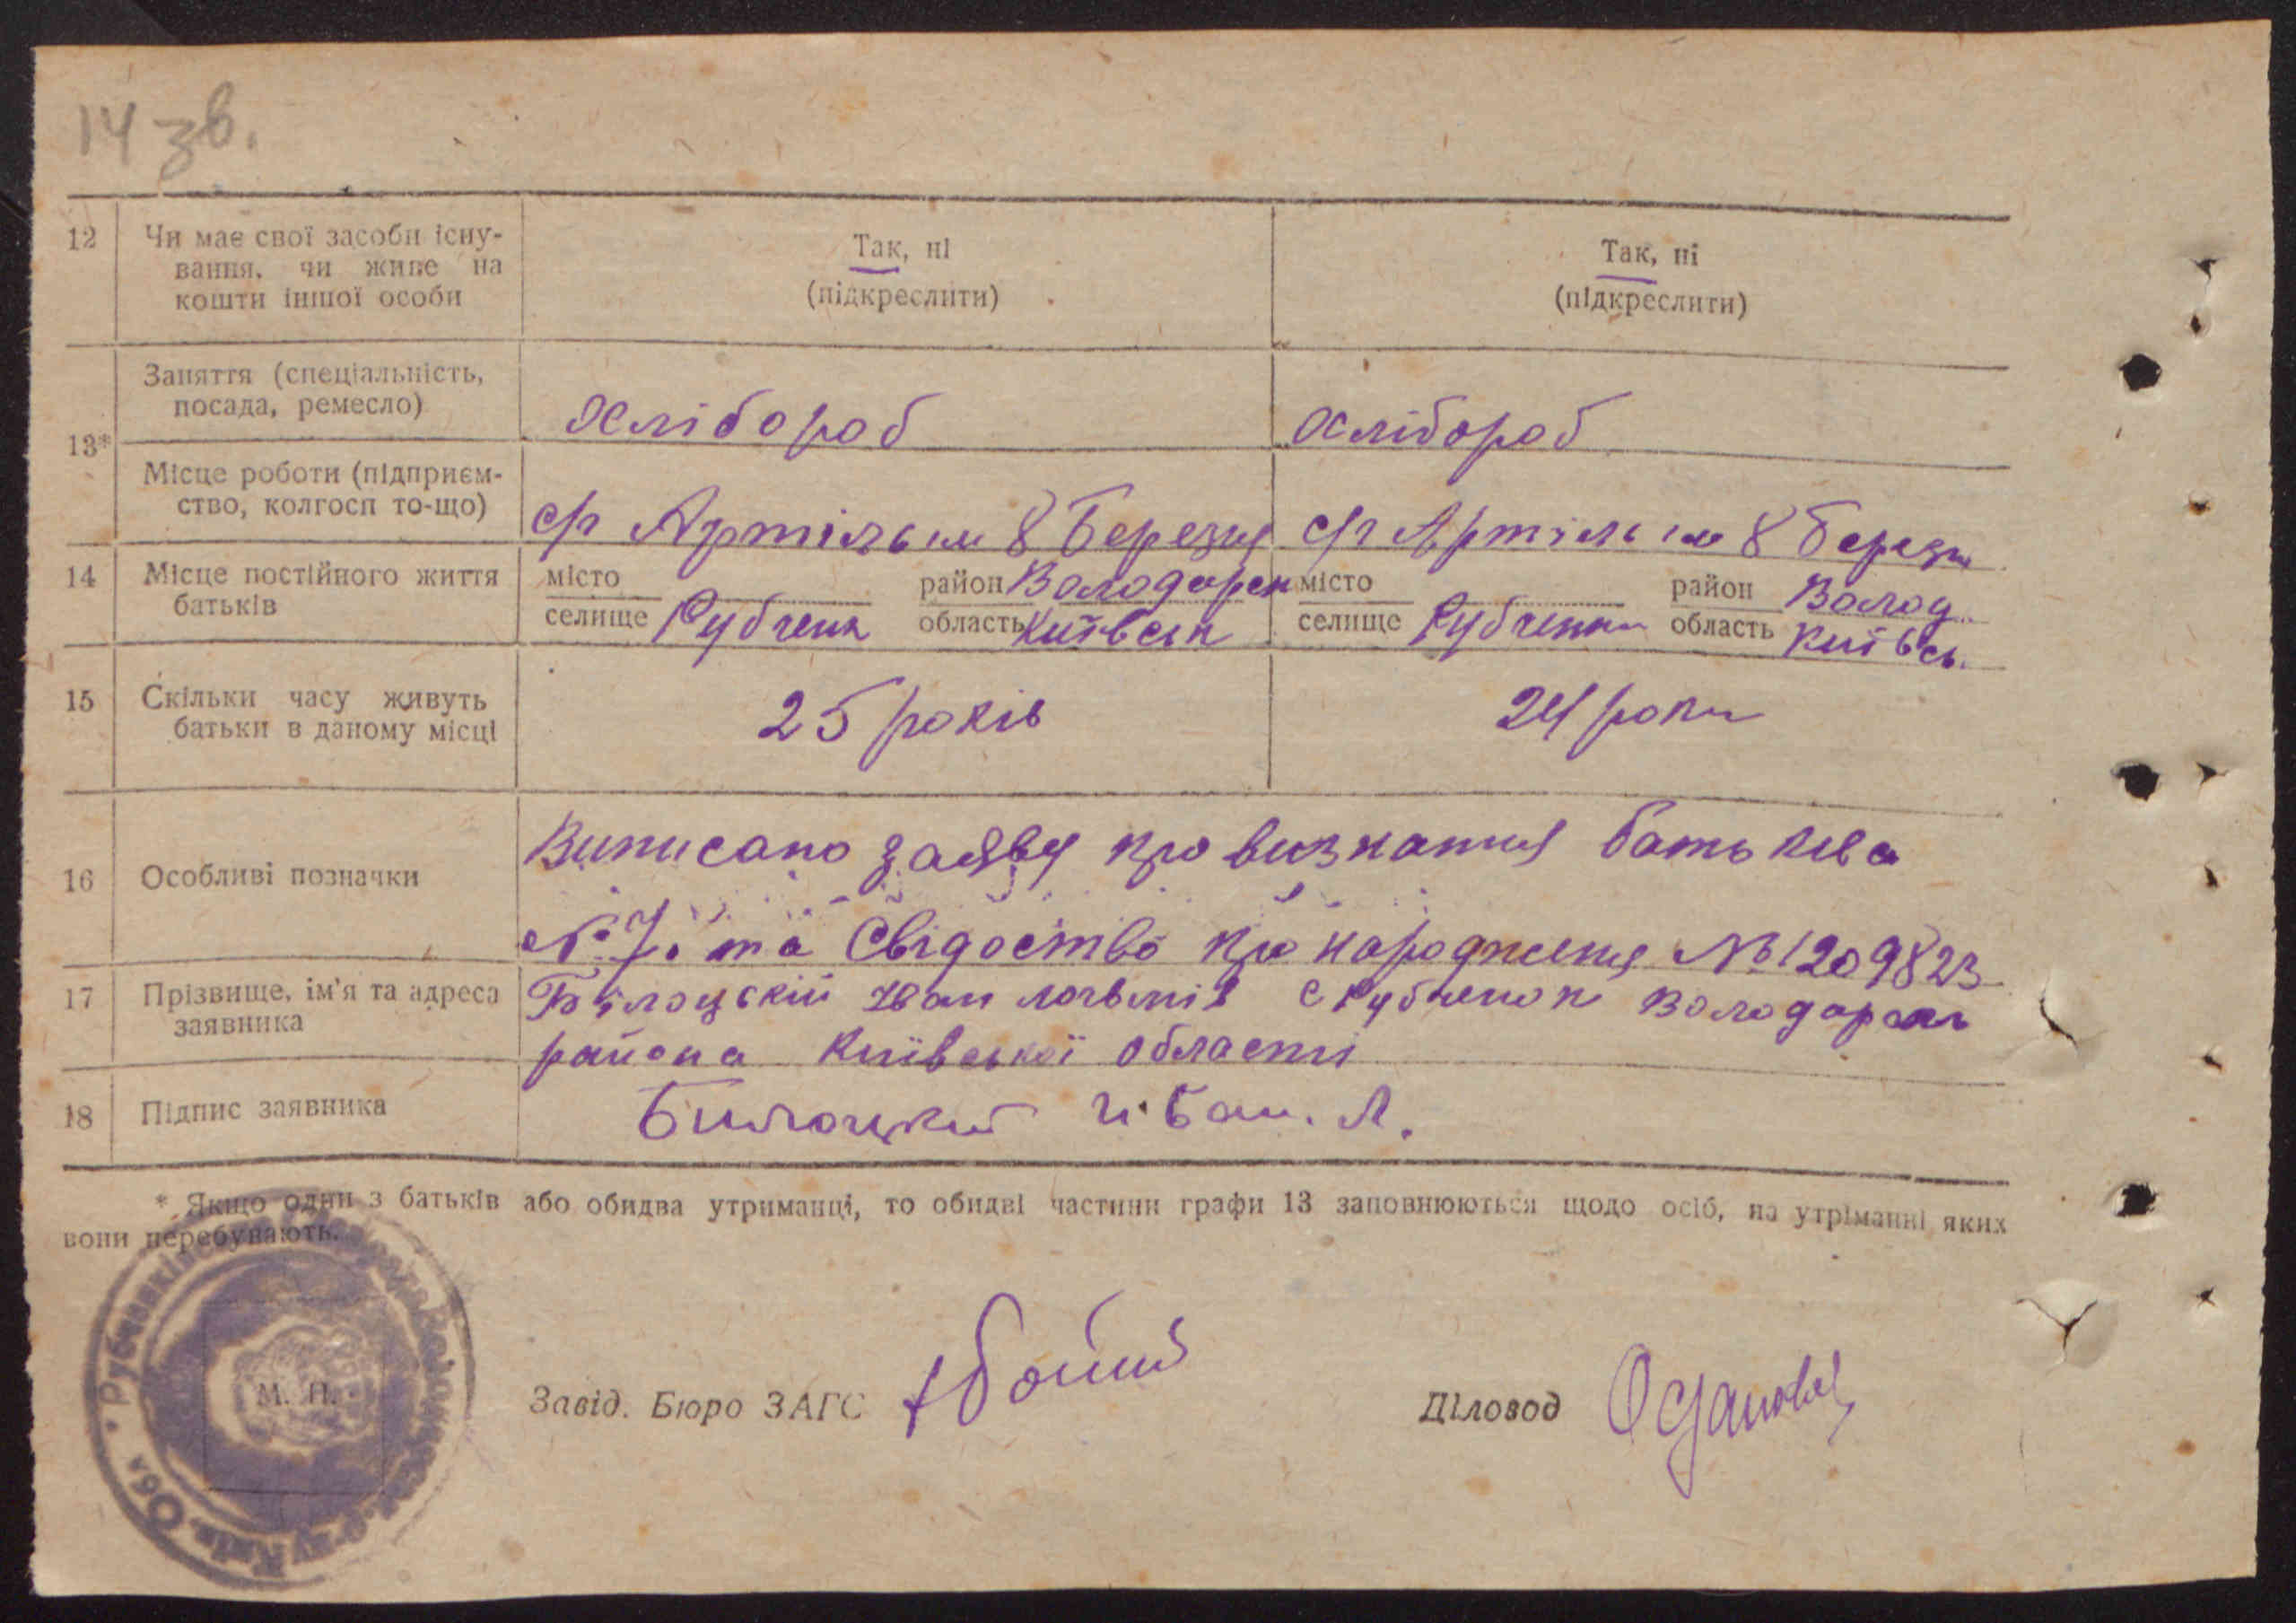 14 зв.
12 Чи має свої засоби існу-
вання, чи живе на
кошти іншої особи
Так, ні
(підкреслити)
Так, ні
(підкреслити)
13*
Заняття (спеціальність,
посада, ремесло)
Хлібороб
Хлібороб
Місце роботи (підприєм-
ство, колгосп то-що)
с/г Артіль ім 8 Березня
с/г Артіль ім 8 Березня
14 Місце постійного життя
батьків
місто
селище Рубченк
район Володарск
область Київськ
місто
селище Рубченки
район Волод.
область Київсь.
15 Скільки часу живуть
батьки в даному місці
25 років
24 роки
16 Особливі позначки
Виписано заяву про визнання батьків
№ 7. та Свідоство про народження № 1209823
17 Прізвище, ім'я та адреса
заявника
Білоцький Іван с Рубченок Володарськ
района Київської області
18 Підпис заявника
Билоцкий Иван. Л.
* Якщо один з батьків або обидва утриманці, то обидві частини графи 13 заповнюються щодо осіб, на утріманні яких
вони перебувають.
М. П.
Завід. Бюро ЗАГС
Діловод